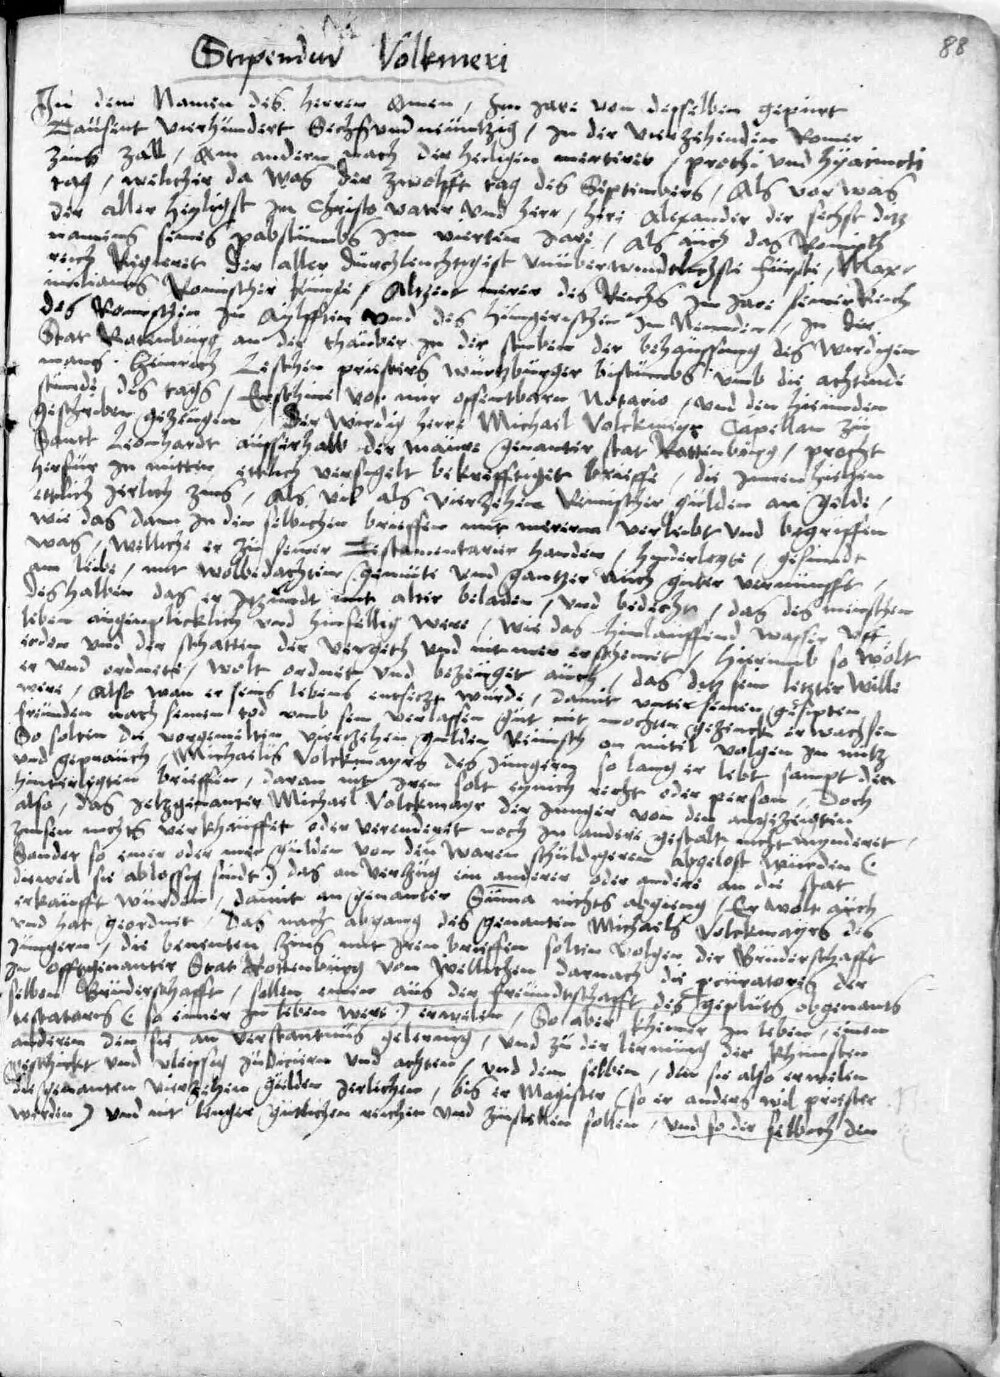 88
Stipendiu Volkmeri
In dem Namen des herren Amen, Im Jare von desselben gepurt
Tausent vierhundert Sechsundneuntzig, In der vierzehenden Romer
Zins Zall, Am andern nach der heiligen mertirer, prothi und hyacincti
tag, welicher da was der zwolfft tag des Septembers, Als vor was
der aller heyligst In Christo vater und herr, herr Alexander der sechst ditz
namens seines pabstumbs Im vierten Jare, Als auch das Romisch
reich Regieret der aller durchleuchtigist unuberwindtlichste furste, Maxi-
milianus Romischer kunig, Altzeit merer des Reichs Im Jare seiner Reich
des Romischen Im Aylfften und des hungerischen Im Neunden, In der
Stat Rotenburg an der thauber In der stuben der behaussung des wirdigen
mans heinrich Zeschen priesters wurtzburger bistumbs umb die achtende
stunde des tags, Erschine vor mir offentbarn Notario, und den hieunden
geschriben gezeugen, Der wirdig herre Michael Volckmeyr Capellan zu
Santt Leonhardt ausserhalb der maure genanter stat Rottenburg, pracht
herfur In mittin ettlich versigelt bekrefftiget brieffe, die Innen hielten
ettlich Jerlich zins, Als vil als vierzehen Reinischer gulden an golde,
wie das dann In den selbichen brieffen mit merern verleibt und begriffen
was, Welliche er zu seiner Testamentarier handen, hynderlegte, gesundt
am leibe, mit wolbedachtem gemute und gantzer auch guter vernunfft,
deshalben das er Itzundt mit alter beladen, und bedechte, das des menschen
leben augenplicklich und hinfellig were, wie das hinlauffend wasser uff
erden und der schatten der vergeth und nit mer erscheinet, hierumb so wolt
er und ordnete, wolt ordnet und bezeuget auch, das ditz sein letzter wille
were, Also wan er seins lebens entsetzt wurde, damit unter seinen gesipten
freunden nach seinem tod umb sein verlassen gut nit mochten gezenck erwachsen
So solten die vorgemelten vierzehen gulden Reinisch on mitel volgen In nutz
und gepnauch Michaelis Volckmayrs des Jungern so lang er lebt sampt den
hinterlegten brieffen, daran nit Iren solt eynich recht oder person, Doch
also, das Jetzgenanter Michael Volckmayr der Junger von den angezeigten
zinsen nichts verkhauffet oder verenderet noch In andere gestalt nicht mynderet,
Sonder so einer oder mer gulden von den waren schuldigern abgelost wurden (:
dieweil sie ablossig sindt:) das an verzug ein anderer oder andere an die stat
erkaufft wurden, damit an genanter Suma nichts abgieng, Er wolt auch
und hat geordnet, Das nach abgang des genanten Michaels Volckmayrs des
Jungern, die benenten Zins mit Iren brieffen solten volgen der Bruderschafft
In offtgenanter Stat Rottenburg von wellichen darnach die procuratores der
selben Bruderschafft, sollen einen aus der freundtschafft des gepluts obgenants
testators (: so einer In leben were:) erwelen, So aber kheiner In leben, einen
anderen den sie an verstantnus gelernig, und zu der lernung der khunsten
geschickt und vleissig zudiciern und achten, und dem selben, den sie also erwelen
die genanten vierzehen gulden Jerlichen, bis er Magister (so er anders wil priester
werden) und nit lenger gutlichen reichen und zustellen sollen, und so der selbich den